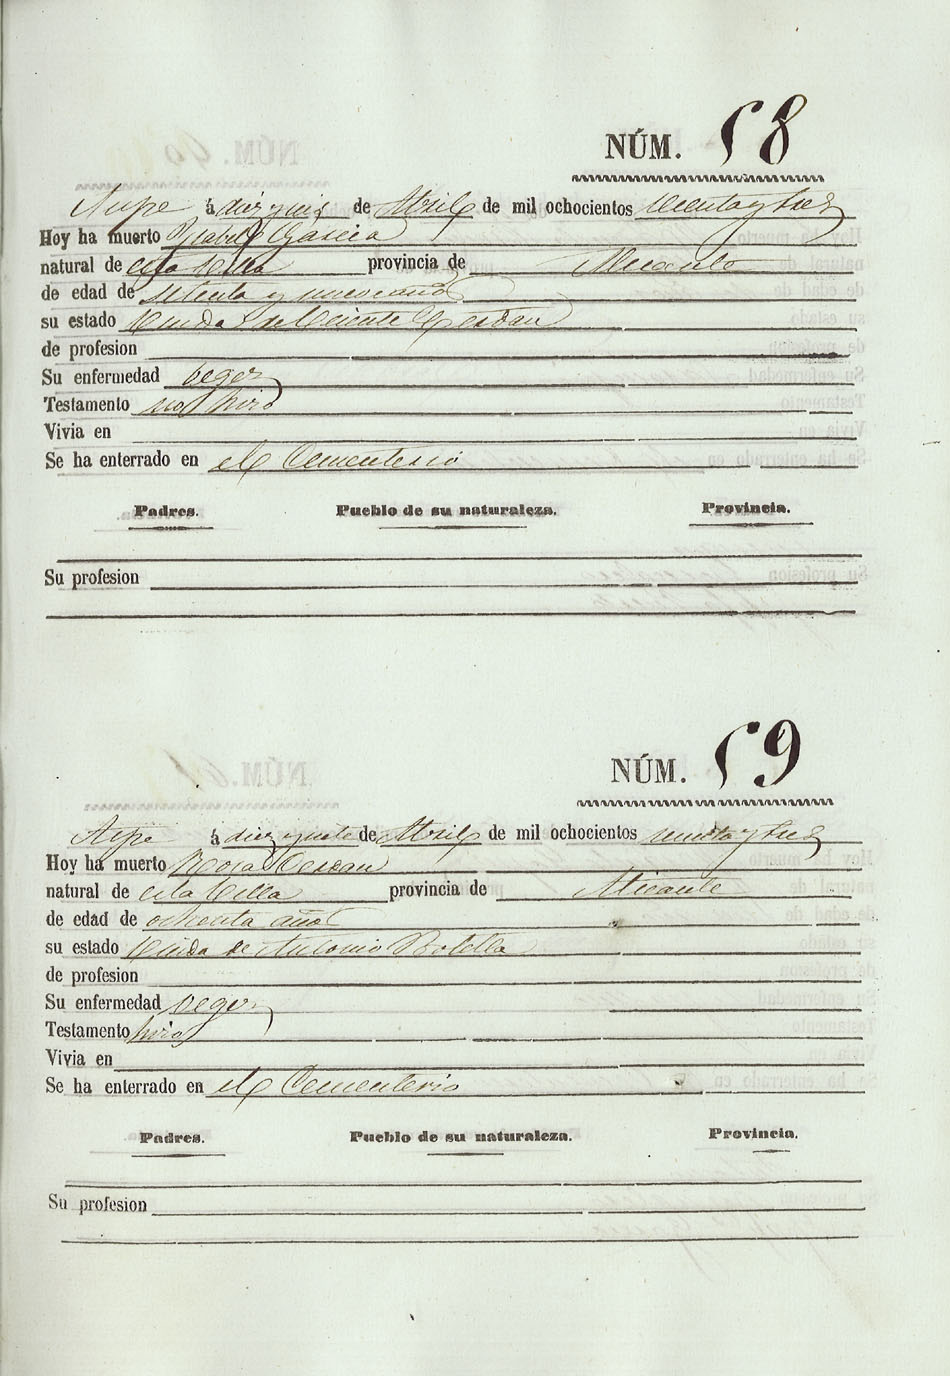 NÚM. 58
Aspe á diez y seis de Abril de mil ochocientos sesenta y tres
Hoy ha muerto Ysabel Garcia
natural de esta Villa provincia de Alicante
de edad de setenta y nueve años
su estado Viuda de Vicente Cerdan
de profesion
Su enfermedad vegez
Testamento no hizo
Vivia en
Se ha enterrado en el Cementerio
Padres. Pueblo de su naturaleza. Provincia.
Su profesion
NÚM. 59
Aspe á diez y siete de Abril de mil ochocientos sesenta y tres
Hoy ha muerto Rosa Cerdan
natural de esta Villa provincia de Alicante
de edad de ochenta años
su estado Viuda de Antonio Botella
de profesion
Su enfermedad vegez
Testamento hizo
Vivia en
Se ha enterrado en el Cementerio
Padres. Pueblo de su naturaleza. Provincia.
Su profesion